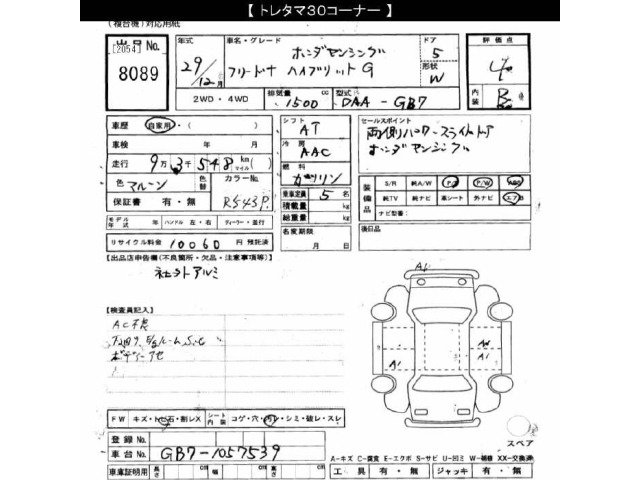 【 トレタマ30コーナー 】
(複合機)対応用紙
出品 No.
[2054]
8089
年式 車名・グレード ドア 評価点
29/12月 ホンダセンシング 5 4
フリード+ ハイブリットG 形状 W 内装 B
2WD・4WD 排気量 1500 cc 型式 DAA-GB7
車歴 自家用・( ) シフト AT セールスポイント
車検 年 月 冷房 AAC 両側パワースライドドア
走行 9万3千548 km(マイル) ホンダセンシング
燃料 ガソリン
色 マルーン 色替 カラーNo. 乗車定員 5名
保証書 有・無 R543P 積載量 kg
装備品 S/R 純A/W P/S P/W ABS
純TV 純ナビ 革シート 外ナビ エアB
ナビ型番:
モデル年式 年 ハンドル 左・右 ディーラー・並行 総重量 kg
リサイクル料金 10060 円 預託済 名変期限 月 日 後日品
【出品店申告欄(不良箇所・欠品・注意事項等)】
社外アルミ
【検査員記入】
AC不良
ボディーアセ
A1
A1
A1
FW キズ・トビ石・割レX シート内装 コゲ・穴・汚レ・シミ・破レ・スレ
スペア
登録 No.
車台 No. GB7-1057539
A-キズ C-腐食 E-エクボ S-サビ U-凹ミ W-補修 XX-交換済
車庫証明用 長さ cm 幅 cm 高さ cm 工具 有・無 ジャッキ 有・無